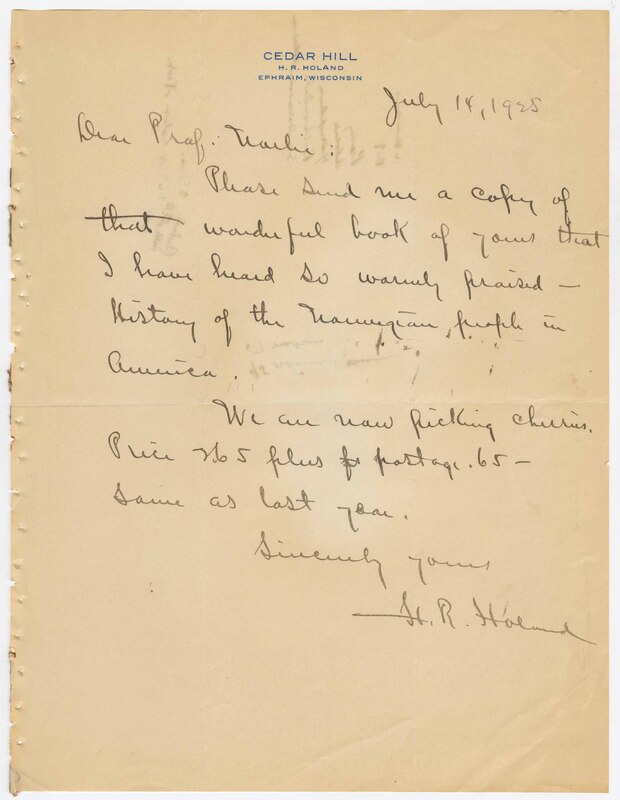 CEDAR HILL
H. R. HOLAND
EPHRAIM, WISCONSIN
July 14, 1925
Dear Prof. Norlie:
Please send me a copy of
that wonderful book of yours that
I have heard so warmly praised —
History of the Norwegian people in
America.
We are now picking cherries.
Price 2.65 plus for postage .65 —
Same as last year.
Sincerely yours
H. R. Holand